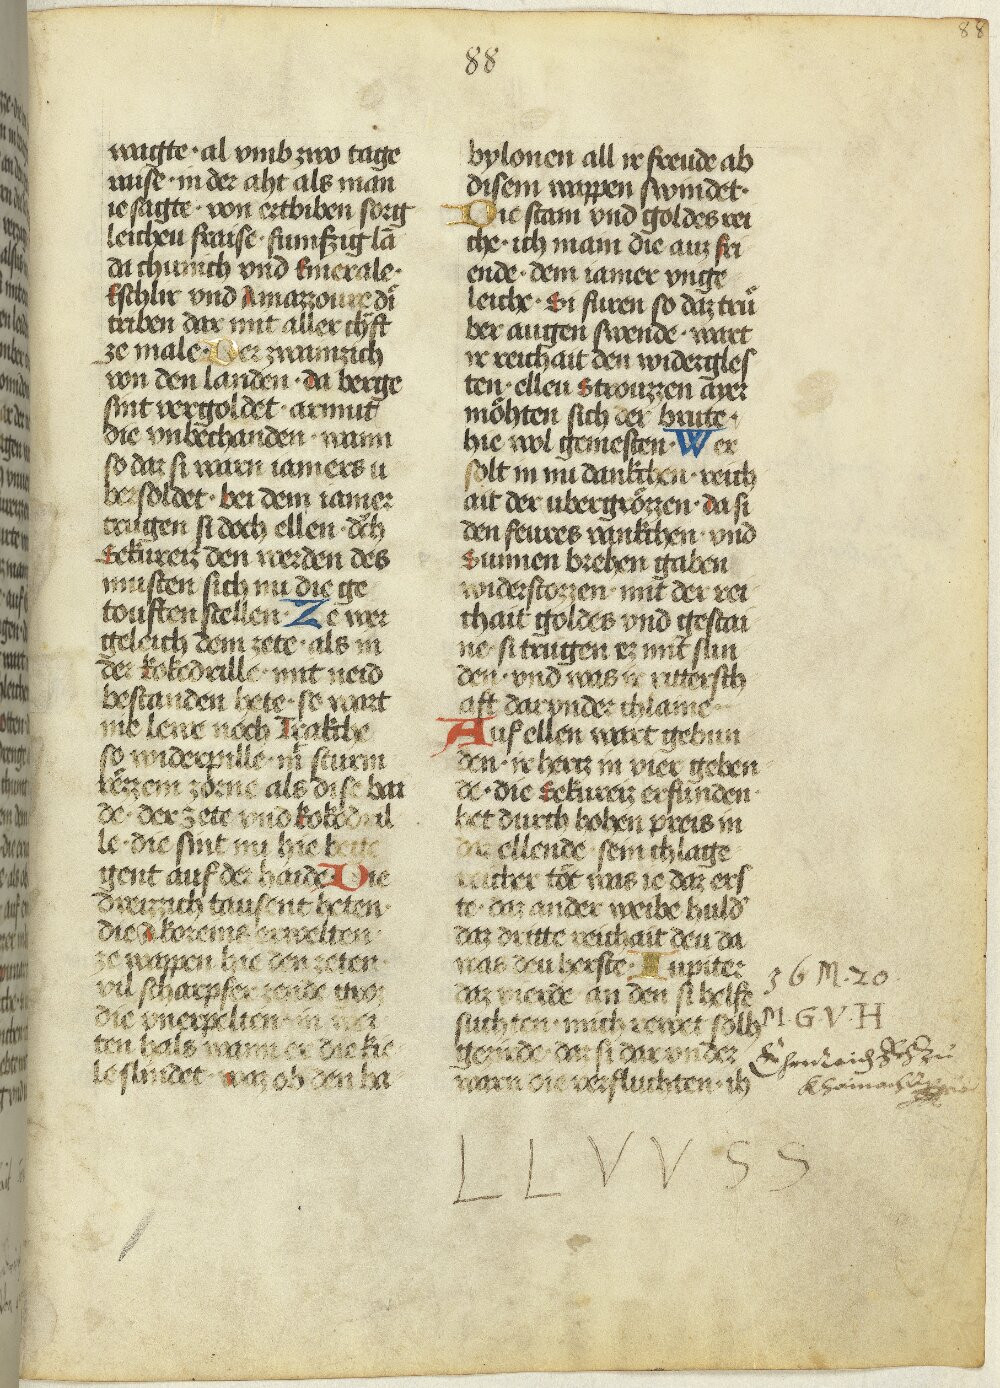 88
88
wagte · al vmb zwo tage
waise · in der aht als man
ie sagte · von ertbiben sorg
leichen fraise · funfzig lā
da chunich vnd Emerale ·
Eschlir vnd Amazzoure di
triben dar mit aller chrft
ze male · Der zwainzich
von den landen · da berge
sint vergoldet · armut
die vnbechanden · wann
so daz si warn iamers u
bersoldet · bei dem iamer
trugen si doch ellen · doch
Sekureiz den werden des
musten sich nu die ge
touften stellen · Ze wer
geleich dem zete · als in
der kokodrille · mit neid
bestanden hete · so wart
nie lewe noch Trakche
so widerpille · in sturm
rezzem zorne als dise bai
de · der zete vnd kokodril
le · die sint nu hie bette
gent auf der haide Die
dreizzich tausent heten ·
die korems erwelten ·
ze wappen hie den zeten ·
vil scharpfer zende
die vnerpelten · in wei
ten hals wann er die kie
le slindet · waz ob den ba
bylonen all ir freude ab
disem wappen swindet ·
Die stain vnd goldes rei
che · ich main die auz fri
ende · dem iamer vnge
leiche · Si furen so daz trů
ber augen swende · wart
ir reichait den widergles
ten · elleu Strouzzen ayer
möhten sich der brute ·
hie wol genesten · Wer
solt in nu dankchen · reich
ait der ubergrözzen · da si
den feures vankchen · vnd
Sunnen brehen gaben
widerstozzen · mit der rei
chait goldes vnd gestai
ne · si trugen ez mit sun
den · vnd was ir rittersch
aft darvnder chlaine
Auf ellen wart gebun
den · ir hertz in vier geben
de · die Sekureiz erfunden ·
het durch hohen preis in
daz ellende · sein chlage
reicher tot was ie daz ers
te · daz ander weibe huld
daz dritte reichait deu da
was deu herste · Iupiter
daz vierde · an den si helfe
suchten · mich rewet solh
gezirde · daz si darvnder
warn die verfluchten · ih
36 M · 20
M · G · V · H
L L V V S S